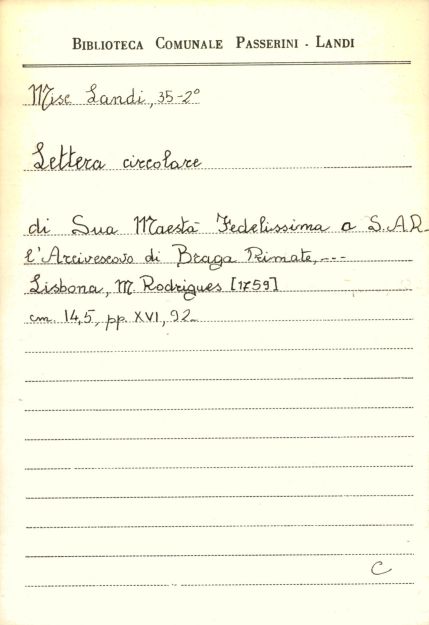 BIBLIOTECA COMUNALE PASSERINI - LANDI
Misc Landi, 35-2°
Lettera circolare
di Sua Maestà Fedelissima a S.A.R.
l'Arcivescovo di Braga Primate, ---
Lisbona, M. Rodrigues [1759]
cm. 14,5, pp. XVI, 92.
C